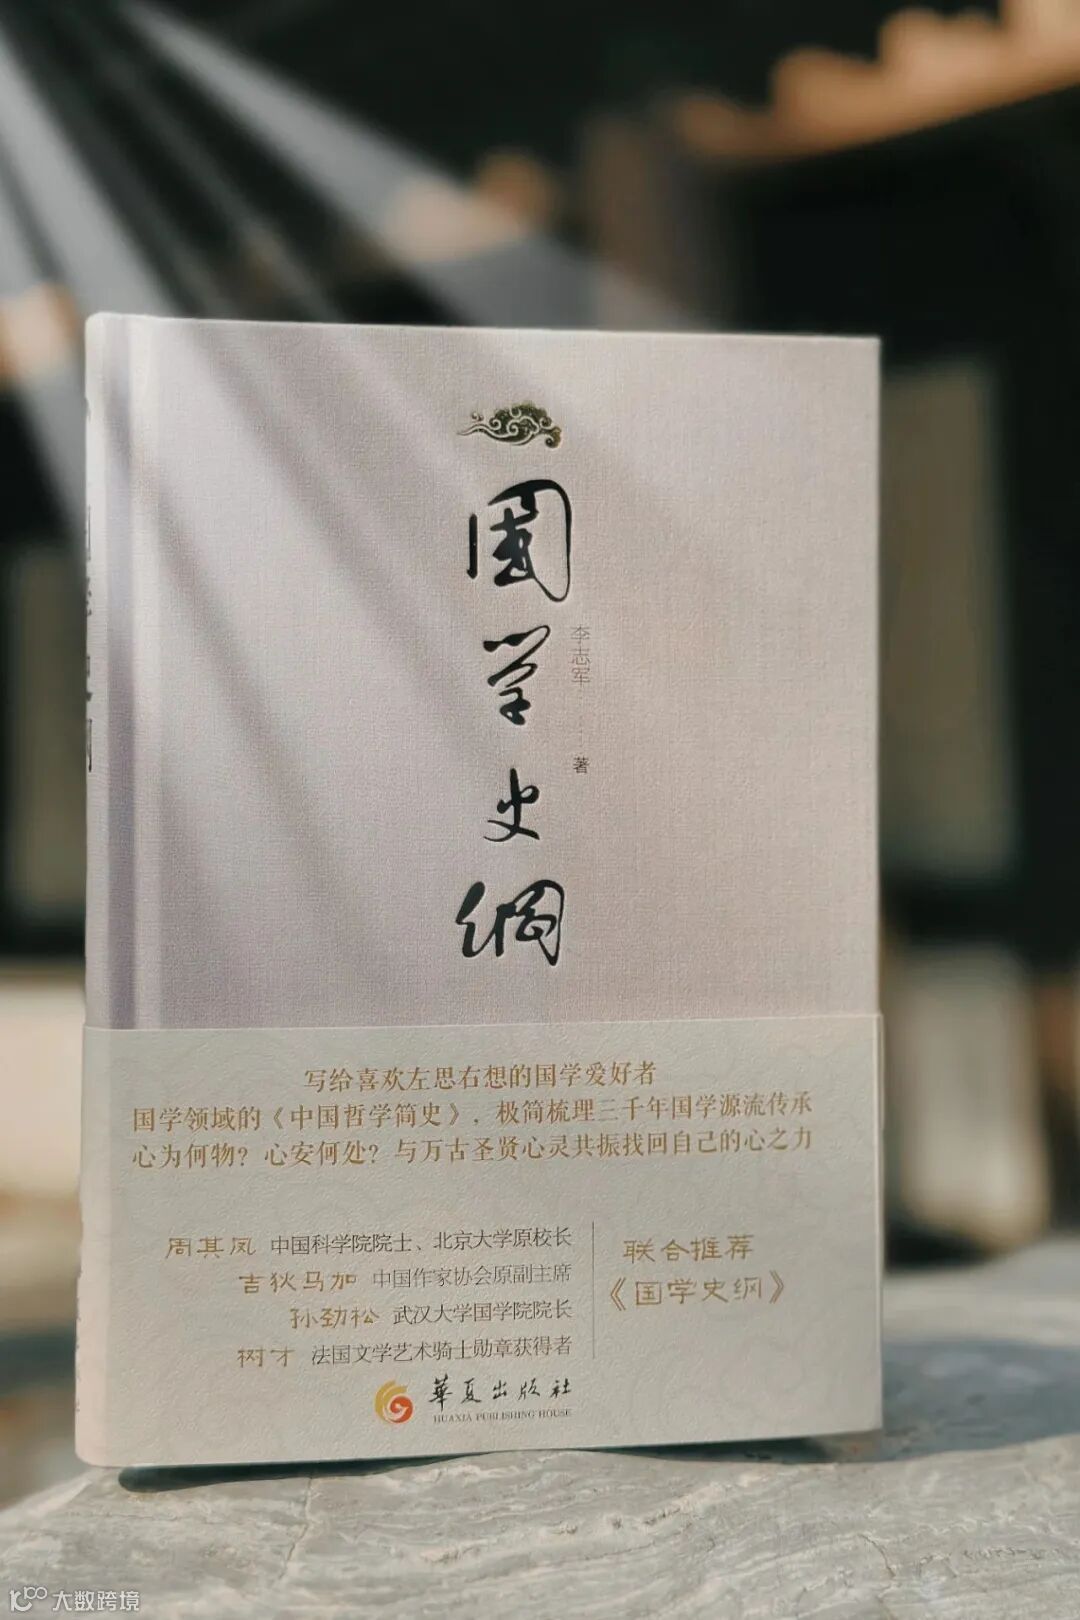 國学史綱
李志军 著
写给喜欢左思右想的国学爱好者
国学领域的《中国哲学简史》，极简梳理三千年国学源流传承
心为何物？心安何处？与万古圣贤心灵共振找回自己的心之力
周其凤 中国科学院院士、北京大学原校长
吉狄马加 中国作家协会原副主席
孙劲松 武汉大学国学院院长
树才 法国文学艺术骑士勋章获得者
联合推荐
《国学史纲》
華夏出版社
HUAXIA PUBLISHING HOUSE
大数跨境